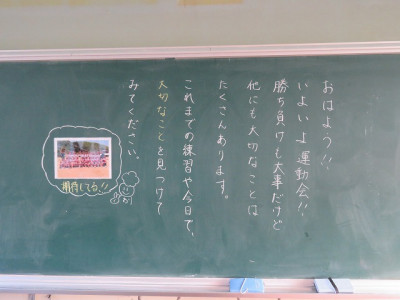 おはよう!!
いよいよ運動会!!
勝ち負けも大事だけど
他にも大切なことは
たくさんあります。
これまでの練習や今日で、
大切なことを見つけて
みてください。
期待してる!!